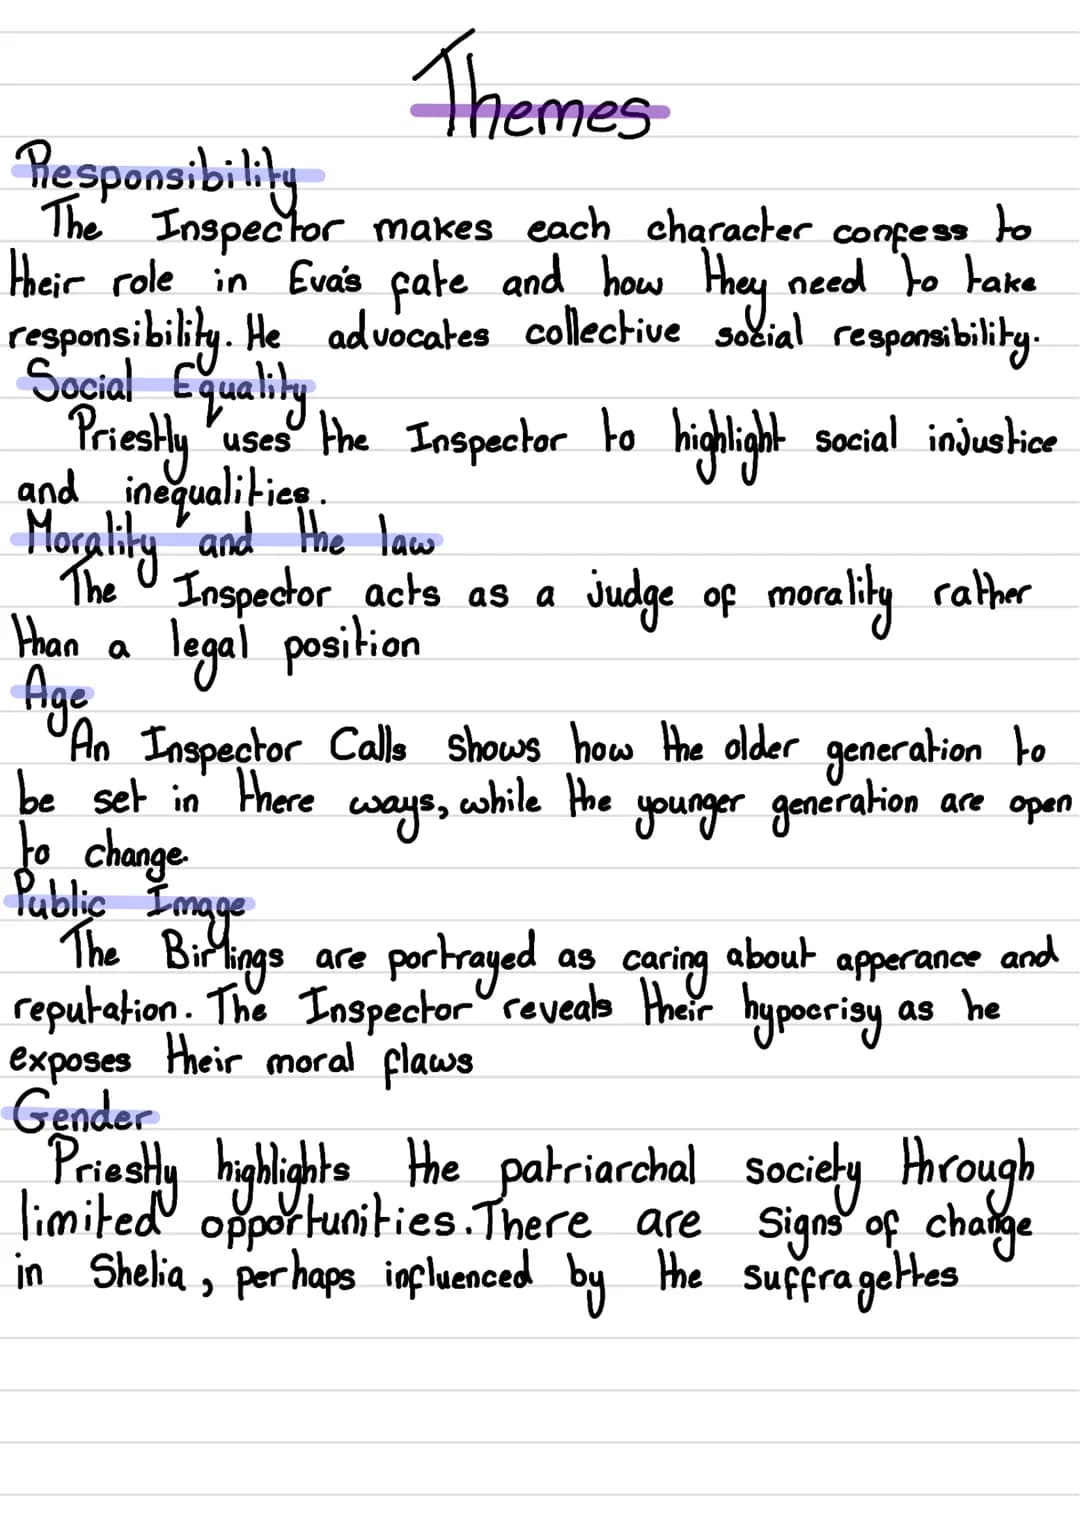 Themes
Responsibility
The Inspector makes each character confess to
their role in Eva's fate and how they need to take
responsibility. He advocates collective social responsibility.
Social Equality
Priestly uses the Inspector to highlight social injustice
and inequalities.
Morality and the law
The Inspector acts as a judge of morality rather
than a legal position
Age
An Inspector Calls shows how the older generation to
be set in there ways, while the younger generation are open
to change.
Public Image
The Birlings are portrayed as caring about apperance and
reputation. The Inspector reveals their hypocrisy as he
exposes their moral flaws
Gender
Priestly highlights the patriarchal society through
limited opportunities. There are signs of change
in Shelia, perhaps influenced by the suffragettes